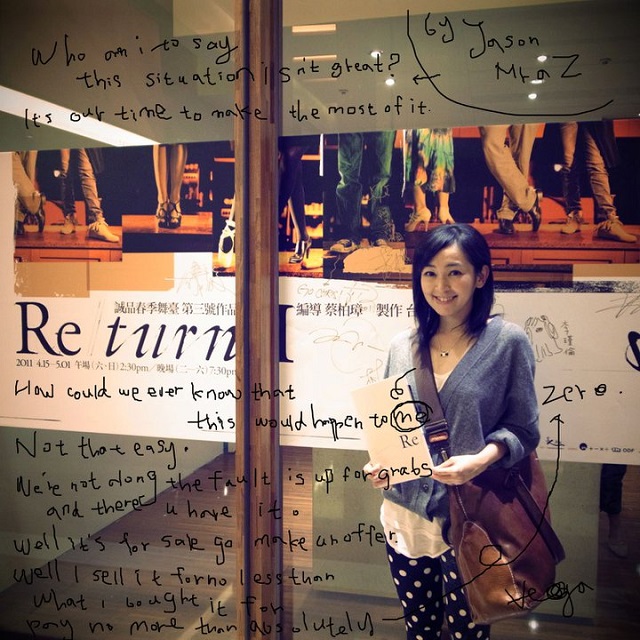 Who am i to say
this situation isn't great?
It's our time to make the most of it.
by Jason
Mraz
誠品春季舞臺 第三號作品
編導 蔡柏璋 製作 台
Re/turn
2011 4.15-5.01 午場(六、日)2:30pm/晚場(二-六)7:30pm
How could we ever know that
this would happen to me
zero.
Re
Not that easy.
We're not along the fault is up for grabs
and there u have it.
Well it's for sale go make an offer
Well I sell it for no less than
what I bought it for
pay no more than absolutely